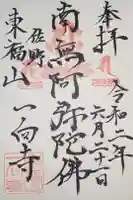 奉拝
令和二年
六月二十一日
南無阿弥陀佛
佐野
東福山
一向寺